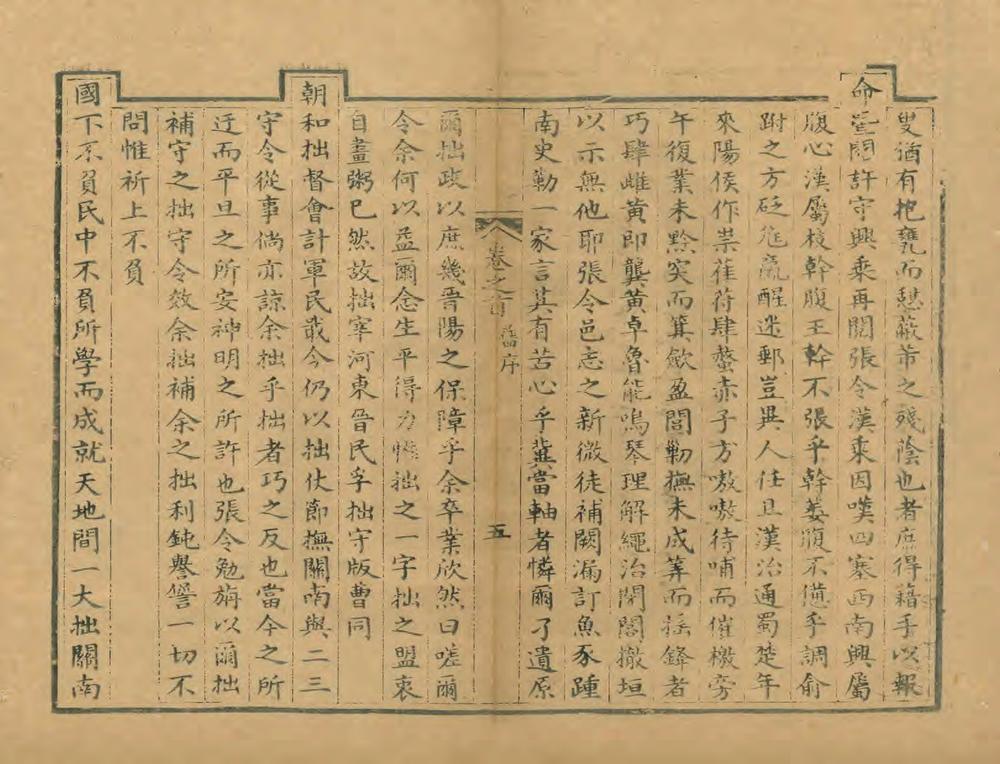 叟猶有抱甕而憩蔽芾之殘陰也者庶得藉手以報
命臺閱許守興乘再閱張令漢乘因嘆四塞西南興屬
腹心漢屬枝幹腹王幹不張乎幹萎腹不憊乎調俞
跗之方砭尫羸醒迷郵豈異人任且漢治通蜀楚年
來陽侯作祟萑苻肆螫赤子方嗷嗷待哺而催檄旁
午復業未黔突而箕歛盈閭勦撫未成筭而揺鋒者
巧肆雌黃即龔黃卓魯能鳴琴理解繩治閉閤撤垣
以示無他耶張令邑志之新微徒補闕漏訂魚豕踵
南史勒一家言其有苦心乎冀當軸者憐爾了遺原
卷之首 舊序 五
爾拙政以庶幾晉陽之保障乎余卒業欣然曰嗟爾
令余何以益爾念生平得力惟拙之一字拙之盟衷
自晝粥已然故拙宰河東晉民孚拙守版曹同
朝和拙督會計軍民戢今仍以拙仗節撫關南與二三
守令從事倘亦諒余拙乎拙者巧之反也當今之所
迂而平旦之所安神明之所許也張令勉旃以爾拙
補守之拙守令效余拙補余之拙利鈍譽訾一切不
問惟祈上不負
國下不負民中不負所學而成就天地間一大拙關南